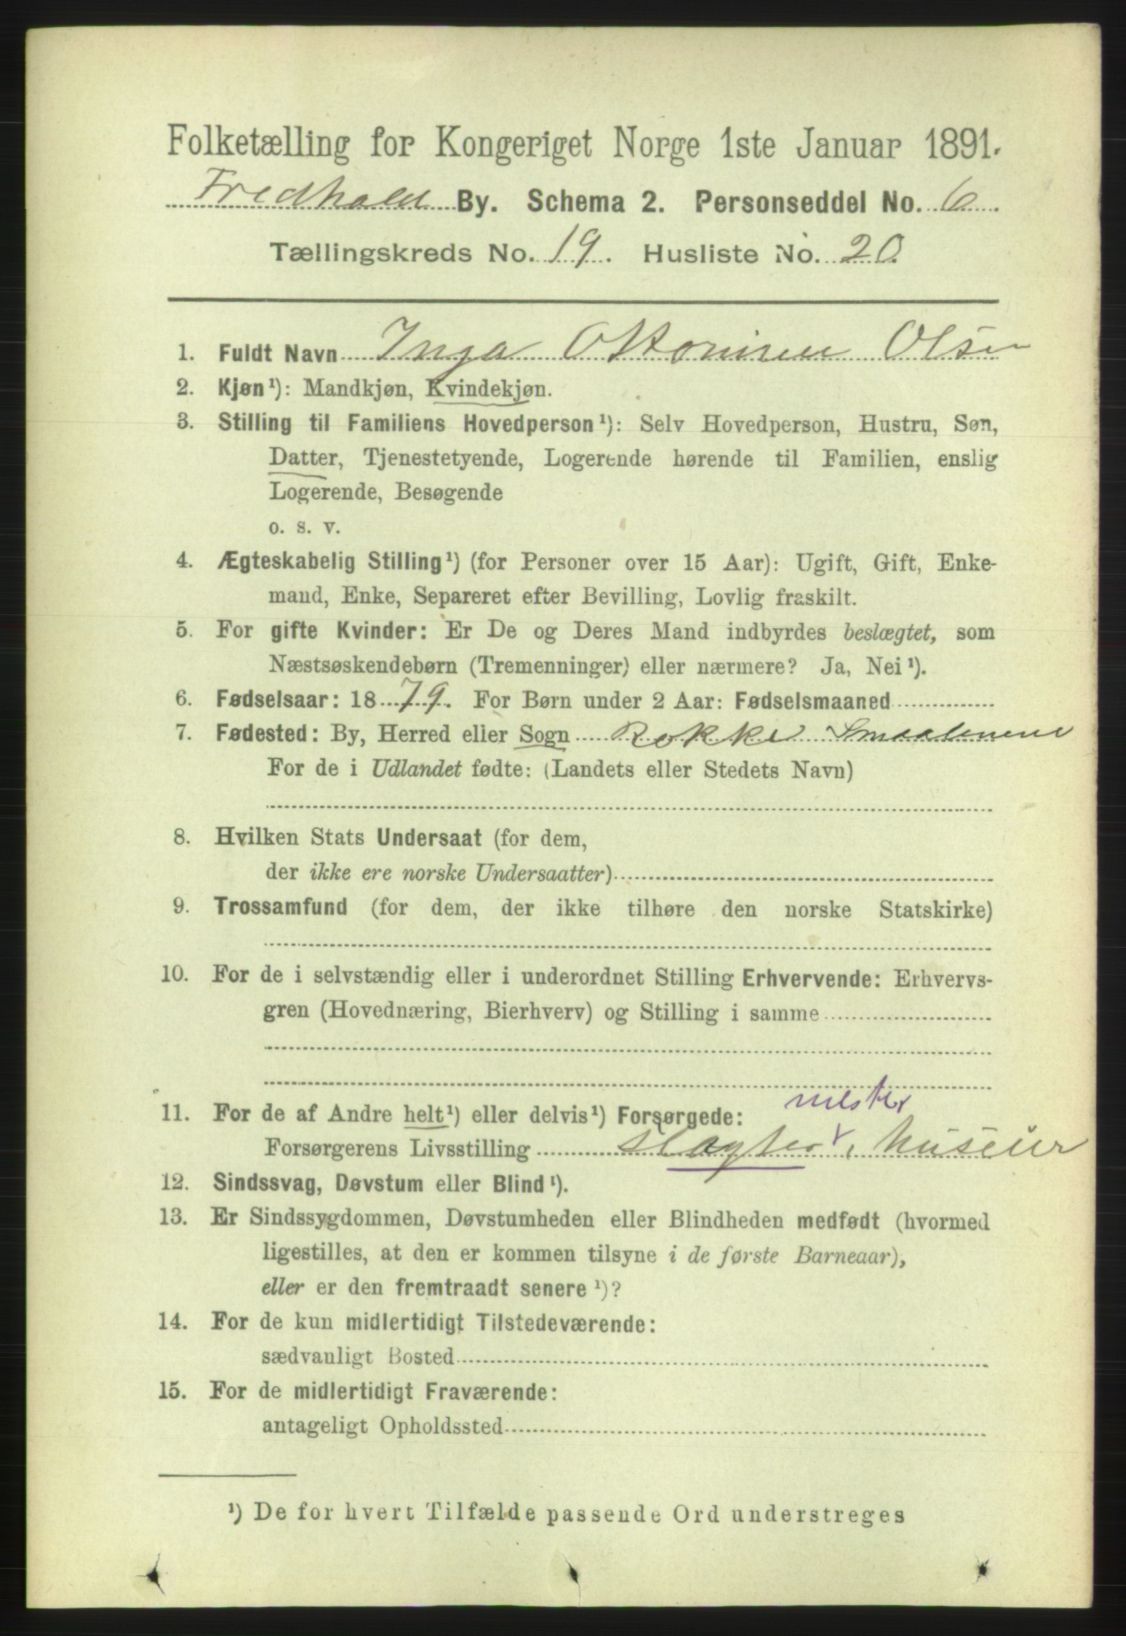 Folketælling for Kongeriget Norge 1ste Januar 1891.
Fredhald By. Schema 2. Personseddel No. 6.
Tællingskreds No. 19. Husliste No. 20.
1. Fuldt Navn Inga Olsen
2. Kjøn¹): Mandkjøn, Kvindekjøn.
3. Stilling til Familiens Hovedperson¹): Selv Hovedperson, Hustru, Søn,
Datter, Tjenestetyende, Logerende hørende til Familien, enslig
Logerende, Besøgende
o. s. v.
4. Ægteskabelig Stilling¹) (for Personer over 15 Aar): Ugift, Gift, Enke-
mand, Enke, Separeret efter Bevilling, Lovlig fraskilt.
5. For gifte Kvinder: Er De og Deres Mand indbyrdes beslægtet, som
Næstsøskendebørn (Tremenninger) eller nærmere? Ja, Nei¹).
6. Fødselsaar: 1879. For Børn under 2 Aar: Fødselsmaaned
7. Fødested: By, Herred eller Sogn Rokke Smaalenene
For de i Udlandet fødte: (Landets eller Stedets Navn)
8. Hvilken Stats Undersaat (for dem,
der ikke ere norske Undersaatter)
9. Trossamfund (for dem, der ikke tilhøre den norske Statskirke)
10. For de i selvstændig eller i underordnet Stilling Erhvervende: Erhvervs-
gren (Hovednæring, Bierhverv) og Stilling i samme
mester
11. For de af Andre helt¹) eller delvis¹) Forsørgede:
Forsørgerens Livsstilling slagter
12. Sindssvag, Døvstum eller Blind¹).
13. Er Sindssygdommen, Døvstumheden eller Blindheden medfødt (hvormed
ligestilles, at den er kommen tilsyne i de første Barneaar),
eller er den fremtraadt senere¹)?
14. For de kun midlertidigt Tilstedeværende:
sædvanligt Bosted
15. For de midlertidigt Fraværende:
antageligt Opholdssted
¹) De for hvert Tilfælde passende Ord understreges